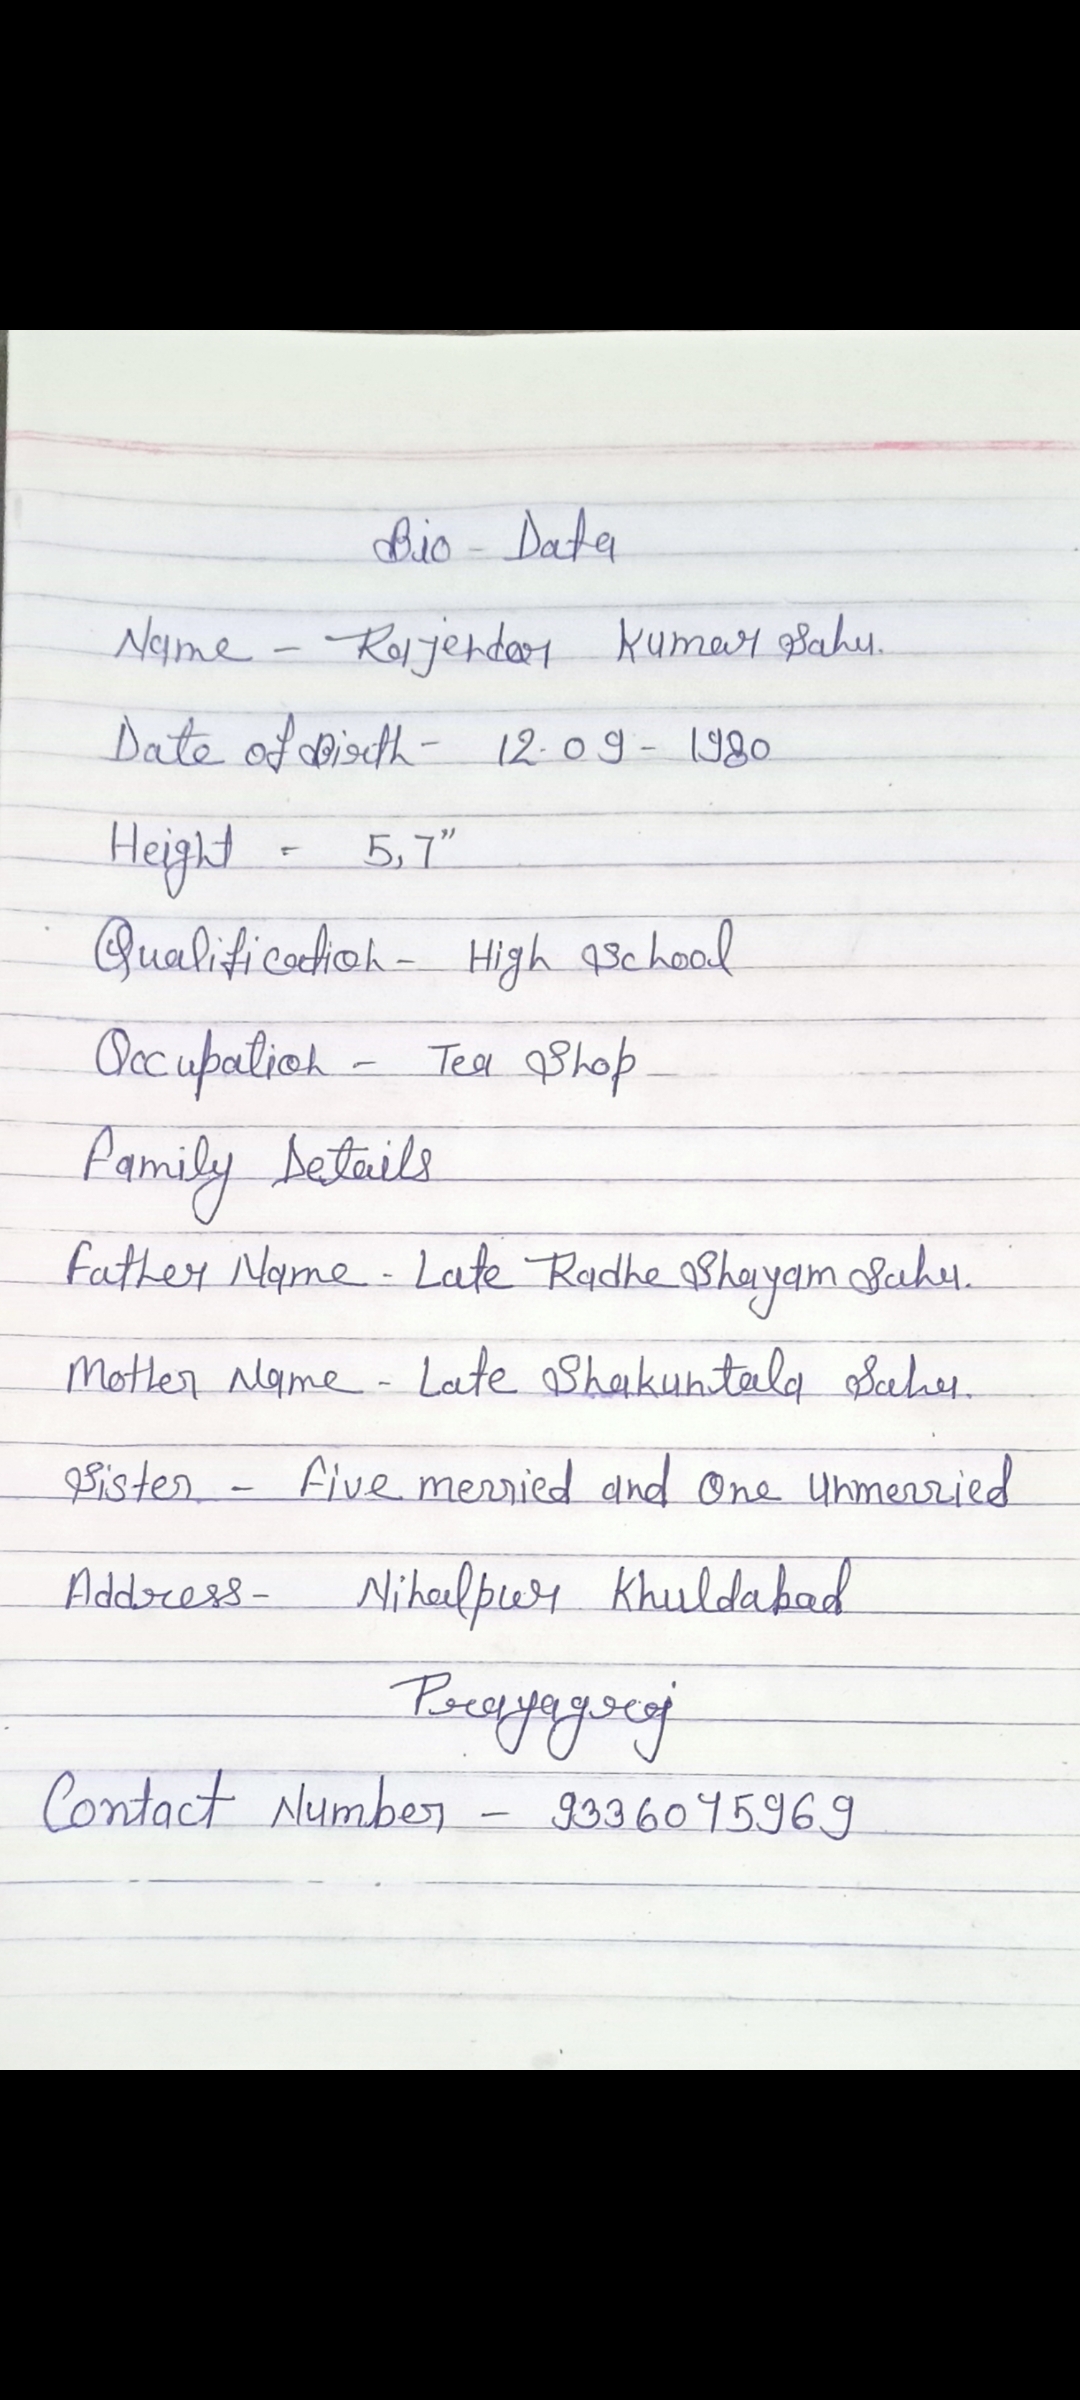 Bio - Data
Name - Rajendar Kumar Sahu.
Date of Birth - 12.09 - 1980
Height - 5,7"
Qualification - High School
Occupation - Tea Shop
Family Details
Father Name - Late Radhe Shayam Sahu.
Mother Name - Late Shakuntala Sahu.
Sister - Five merried and One Unmerried
Address - Nihalpur Khuldabad
Prayagraj
Contact Number - 9336075969